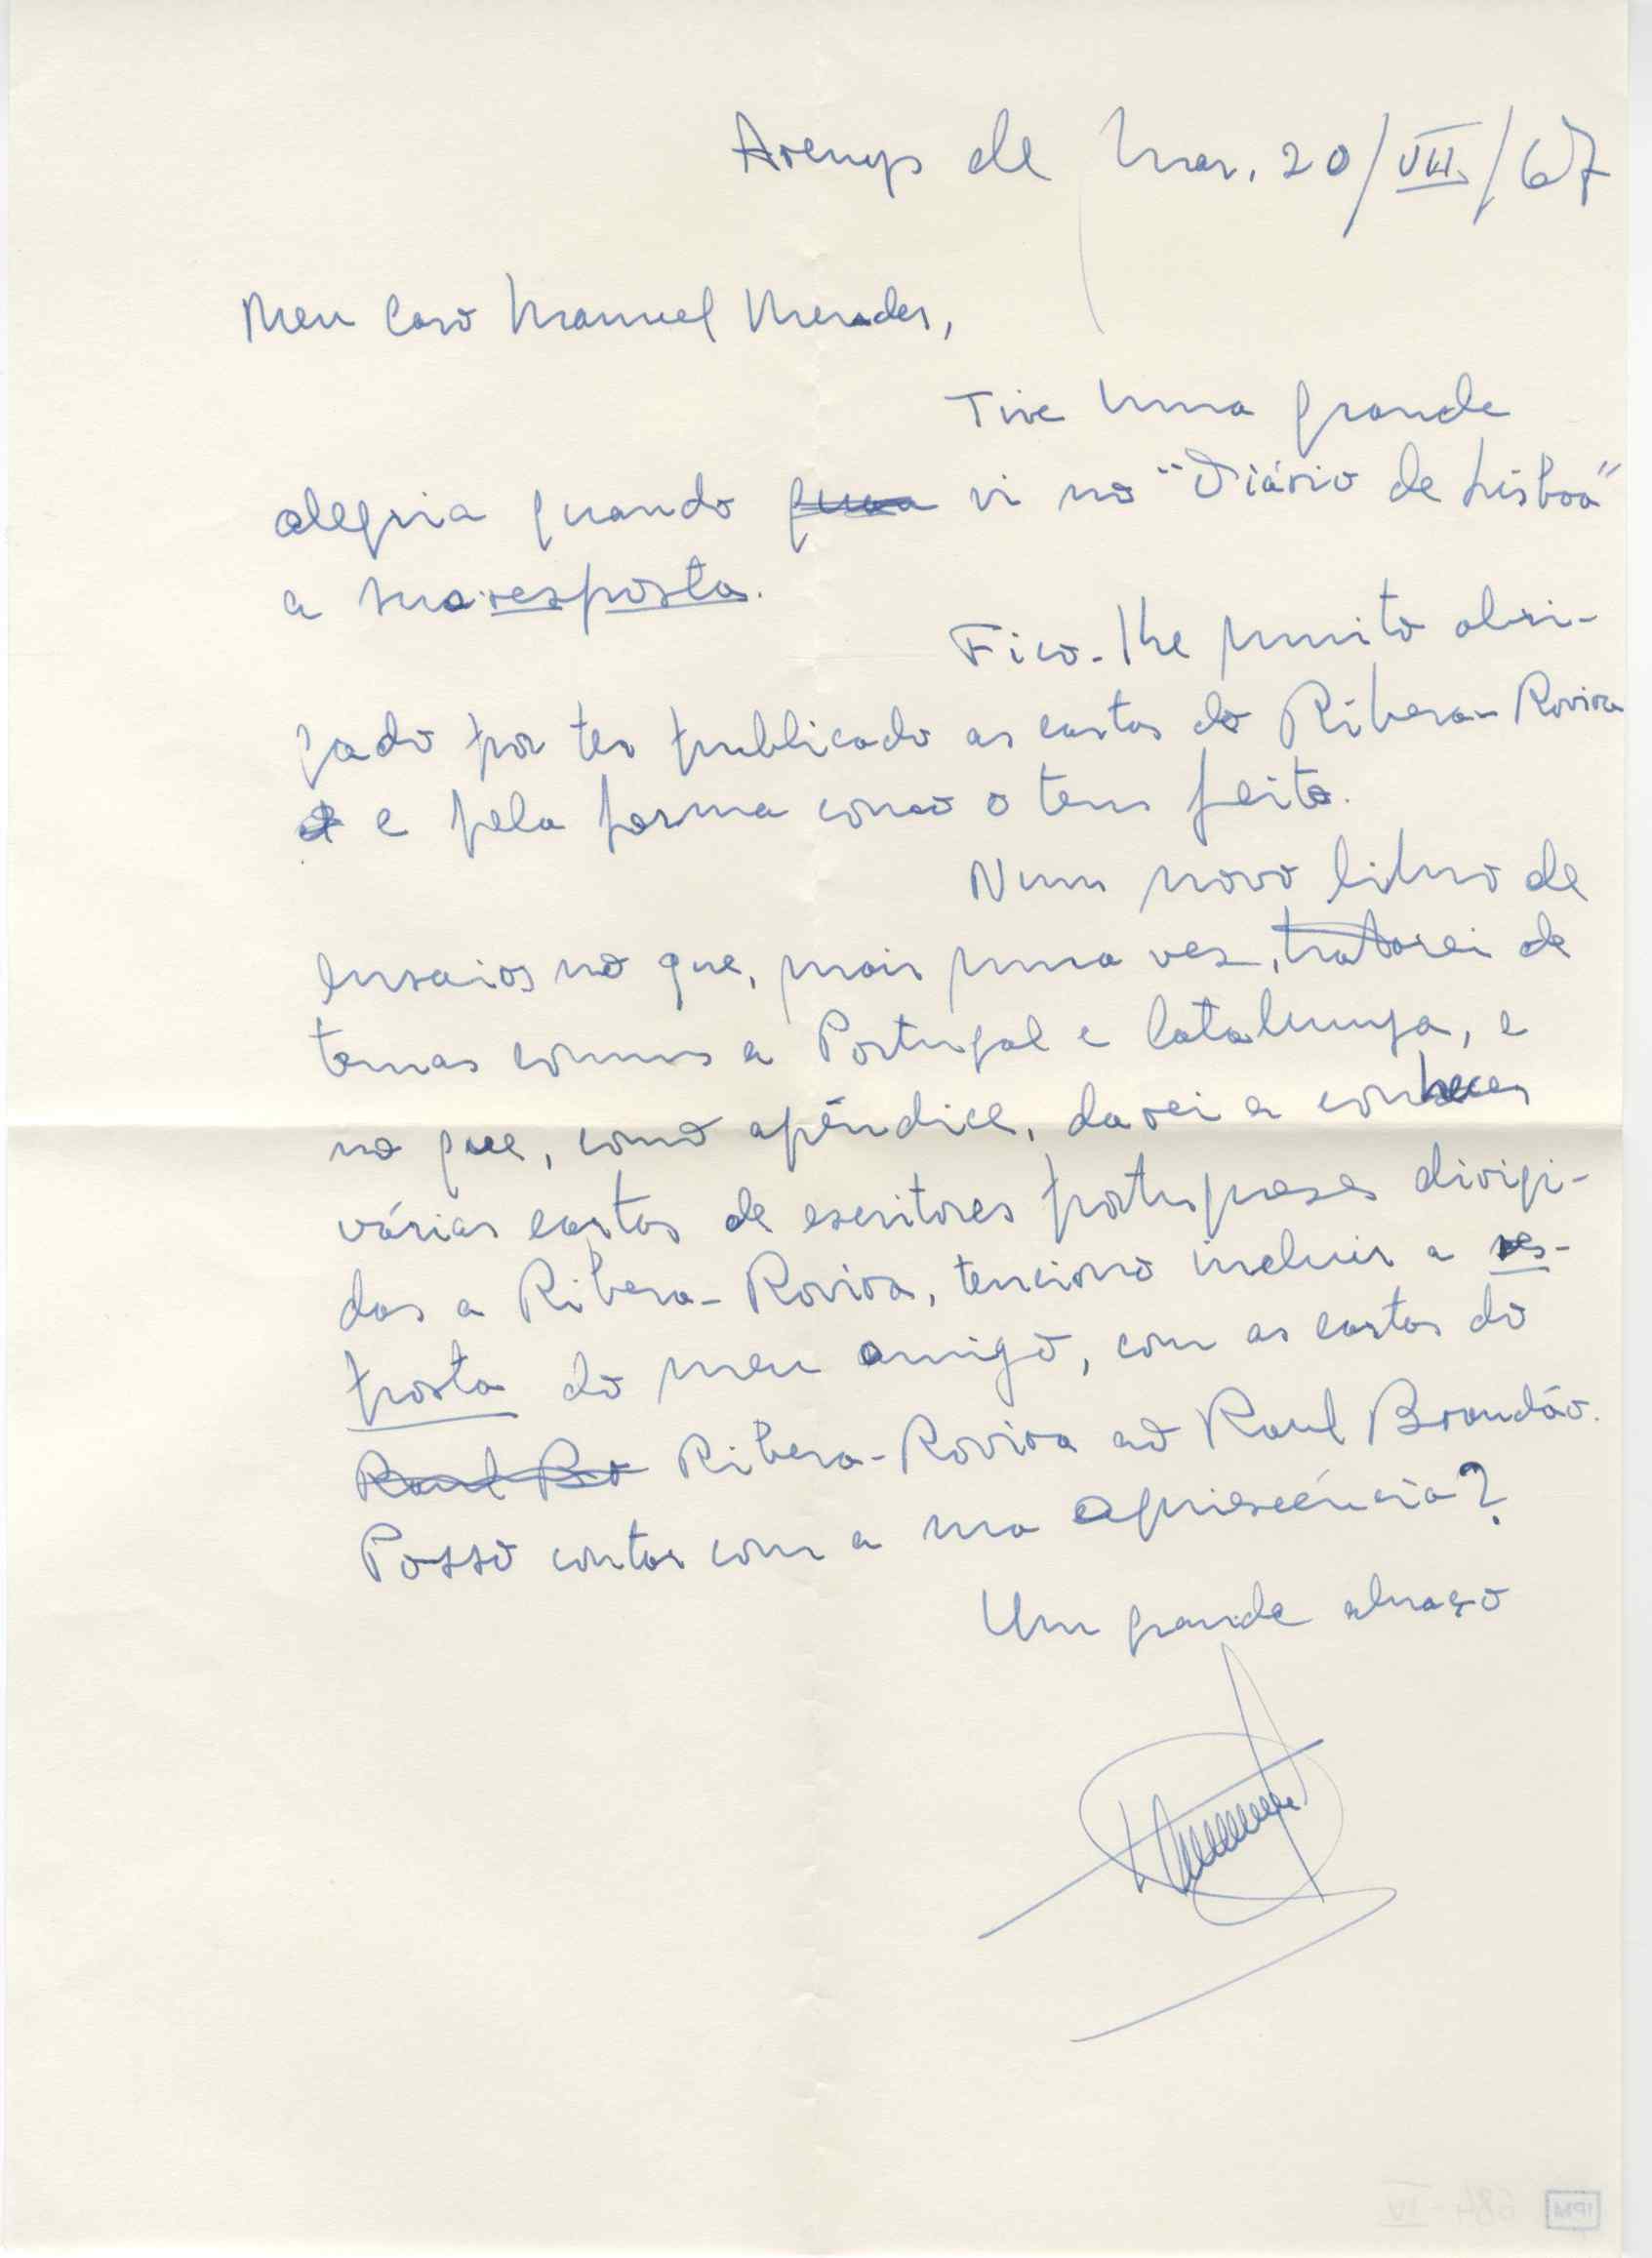 Arenys de Mar, 20/VII/67
Meu Caro Manuel Mendes,
Tive uma grande
alegria quando vi no "Diário de Lisboa"
a sua resposta.
Fico-lhe muito obri-
gado por ter publicado as cartas do Ribera-Rovira
e pela forma como o tem feito.
Num novo livro de
ensaios no que, mais uma vez, tratarei de
temas comuns a Portugal e Catalunya, e
no que, como apêndice, darei a conhecer
várias cartas de escritores portugueses dirigi-
das a Ribera-Rovira, tenciono incluir a res-
posta do meu amigo, com as cartas do
Raul Br Ribera-Rovira ao Raul Brandão.
Posso contar com a sua aquiescência?
Um grande abraço
684-IV IPM